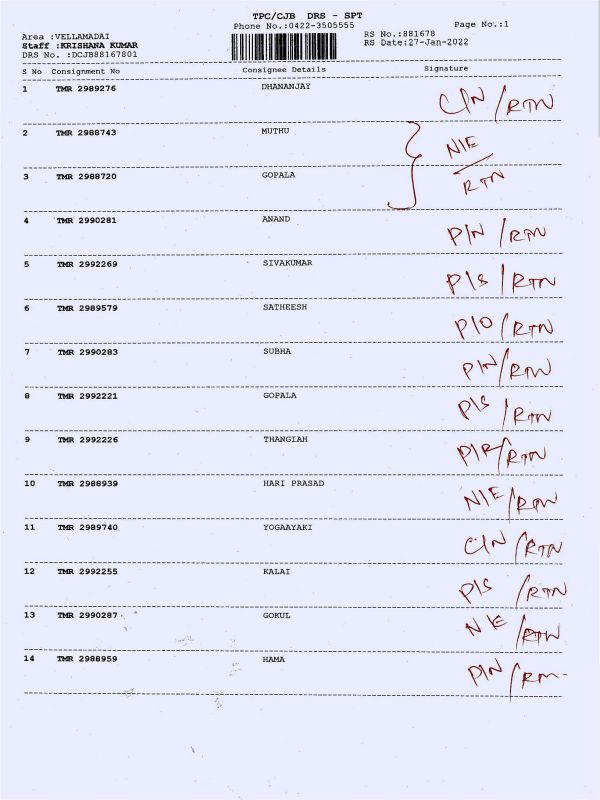 TPC/CJB DRS - SPT
Phone No.:0422-3505555
Page No.:1
Area :VELLAMADAI
Staff :KRISHANA KUMAR
DRS No. :DCJB88167801
RS No.:881678
RS Date:27-Jan-2022
S No Consignment No Consignee Details Signature
1 TMR 2989276 DHANANJAY C/N /RTN
2 TMR 2988743 MUTHU N/E
3 TMR 2988720 GOPALA RTN
4 TMR 2990281 ANAND P/N /RTN
5 TMR 2992269 SIVAKUMAR P/S /RTN
6 TMR 2989579 SATHEESH P/O /RTN
7 TMR 2990283 SUBHA P/N /RTN
8 TMR 2992221 GOPALA P/S /RTN
9 TMR 2992226 THANGIAH P/R /RTN
10 TMR 2988939 HARI PRASAD N/E /RTN
11 TMR 2989740 YOGAAYAKI C/N /RTN
12 TMR 2992255 KALAI P/S /RTN
13 TMR 2990287 GOKUL N/E /RTN
14 TMR 2988959 HAMA P/N